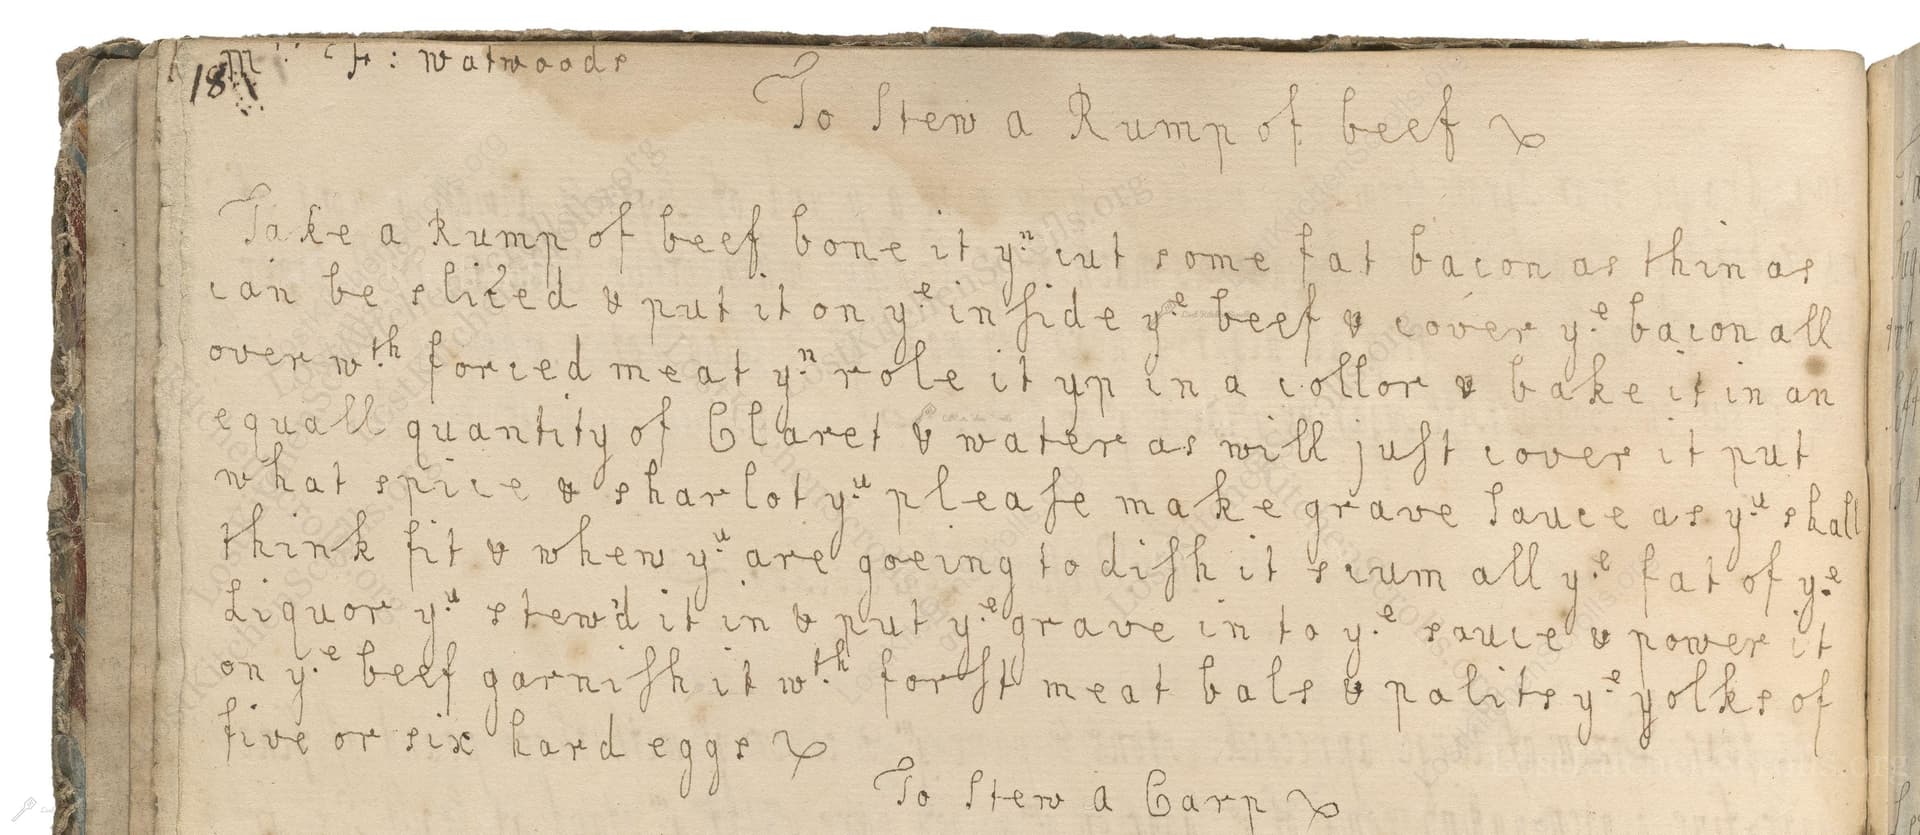 18 M:: F: watwoods
To Stew a Rump of beef
Take a Rump of beef bone it y.n cut some fat bacon as thin as
can be sliced & put it on y.e in side y.e beef & cover y.e bacon all
over w.th forced meat y.n role it up in a collor & bake it in an
equall quantity of Claret & water as will just cover it put
what spice & sharlot y.u please make grave Sauce as y.u shall
think fit & when y.u are goeing to dish it scum all y.e fat of y.e
Liquor y.u stew'd it in & put y.e grave in to y.e sauce & power it
on y.e beef garnish it w.th forst meat bals & palits y.e yolks of
five or six hard eggs
To Stew a Carp